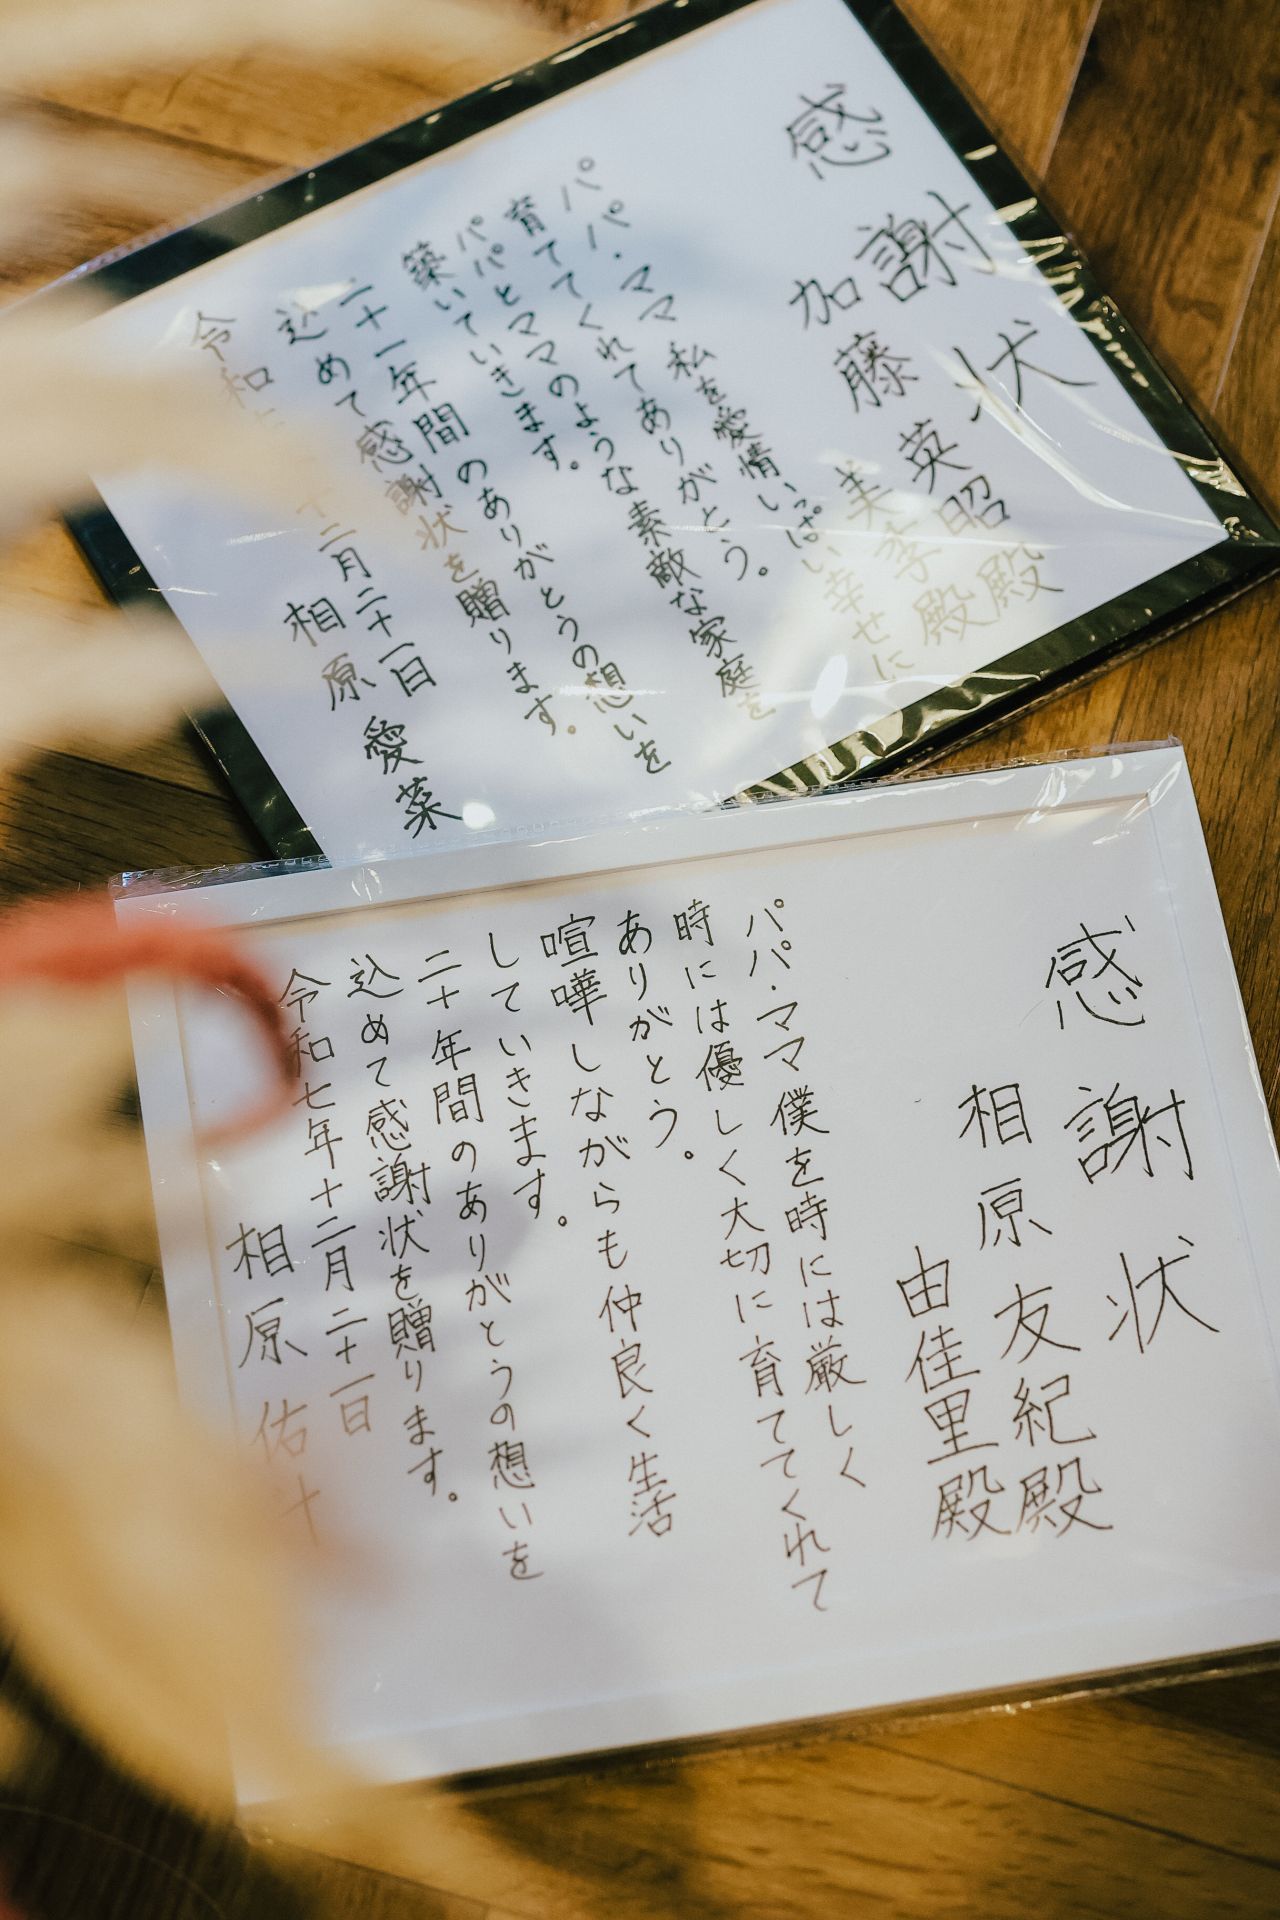 感謝状
加藤 英昭殿
美李殿
パパ・ママ 私を愛情いっぱい幸せに
育ててくれてありがとう。
パパとママのような素敵な家庭を
築いていきます。
二十一年間のありがとうの想いを
込めて感謝状を贈ります。
令和 十二月二十一日
相原 愛菜
感謝状
相原 友紀殿
由佳里殿
パパ・ママ僕を時には厳しく
時には優しく大切に育ててくれて
ありがとう。
喧嘩しながらも仲良く生活
していきます。
二十年間のありがとうの想いを
込めて感謝状を贈ります。
令和七年十二月二十一日
相原 佑汁